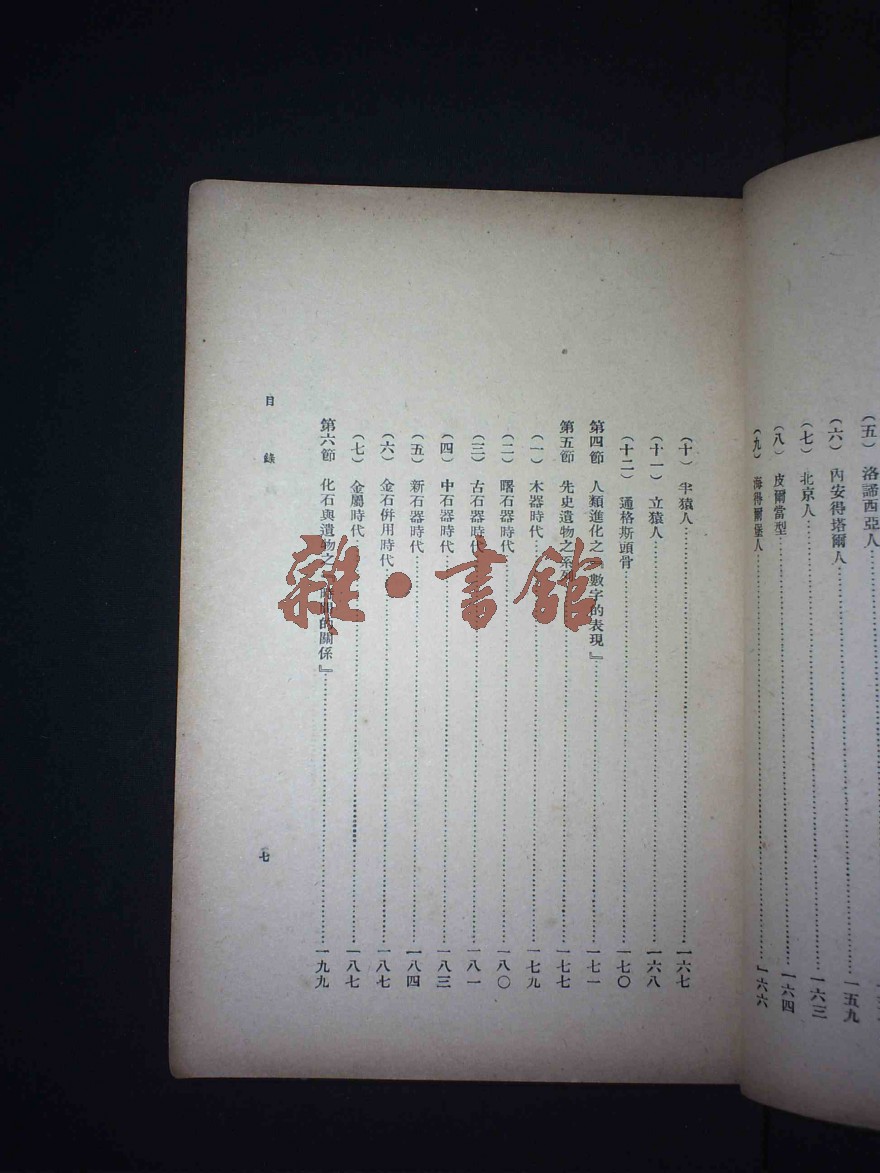 （五）洛諦西亞人
（六）內安得塔爾人……一五九
（七）北京人……一六三
（八）皮爾當型……一六四
（九）海得爾堡人……一六六
（十）半猿人……一六七
（十一）立猿人……一六八
（十二）通格斯頭骨……一七〇
第四節 人類進化之 數字的表現』……一七一
第五節 先史遺物之系列……一七七
（一）木器時代……一七九
（二）曙石器時代……一八〇
（三）古石器時代……一八一
（四）中石器時代……一八三
（五）新石器時代……一八四
（六）金石併用時代……一八七
（七）金屬時代……一八七
第六節 化石與遺物之 的關係』……一九九
目錄
七
雜·書館